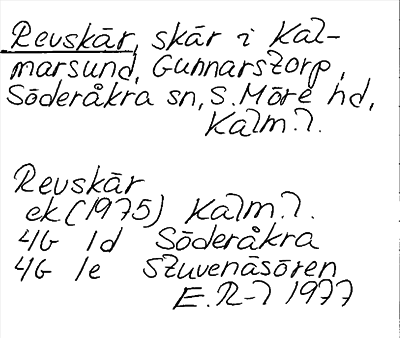 Revskär, skär i Kal-
marsund, Gunnarstorp,
Söderåkra sn, S. Möre hd,
Kalm. l.
Revskär
ek (1975) Kalm. l.
4G 1d Söderåkra
4G 1e Stuvenäsören
E. R-l 1977